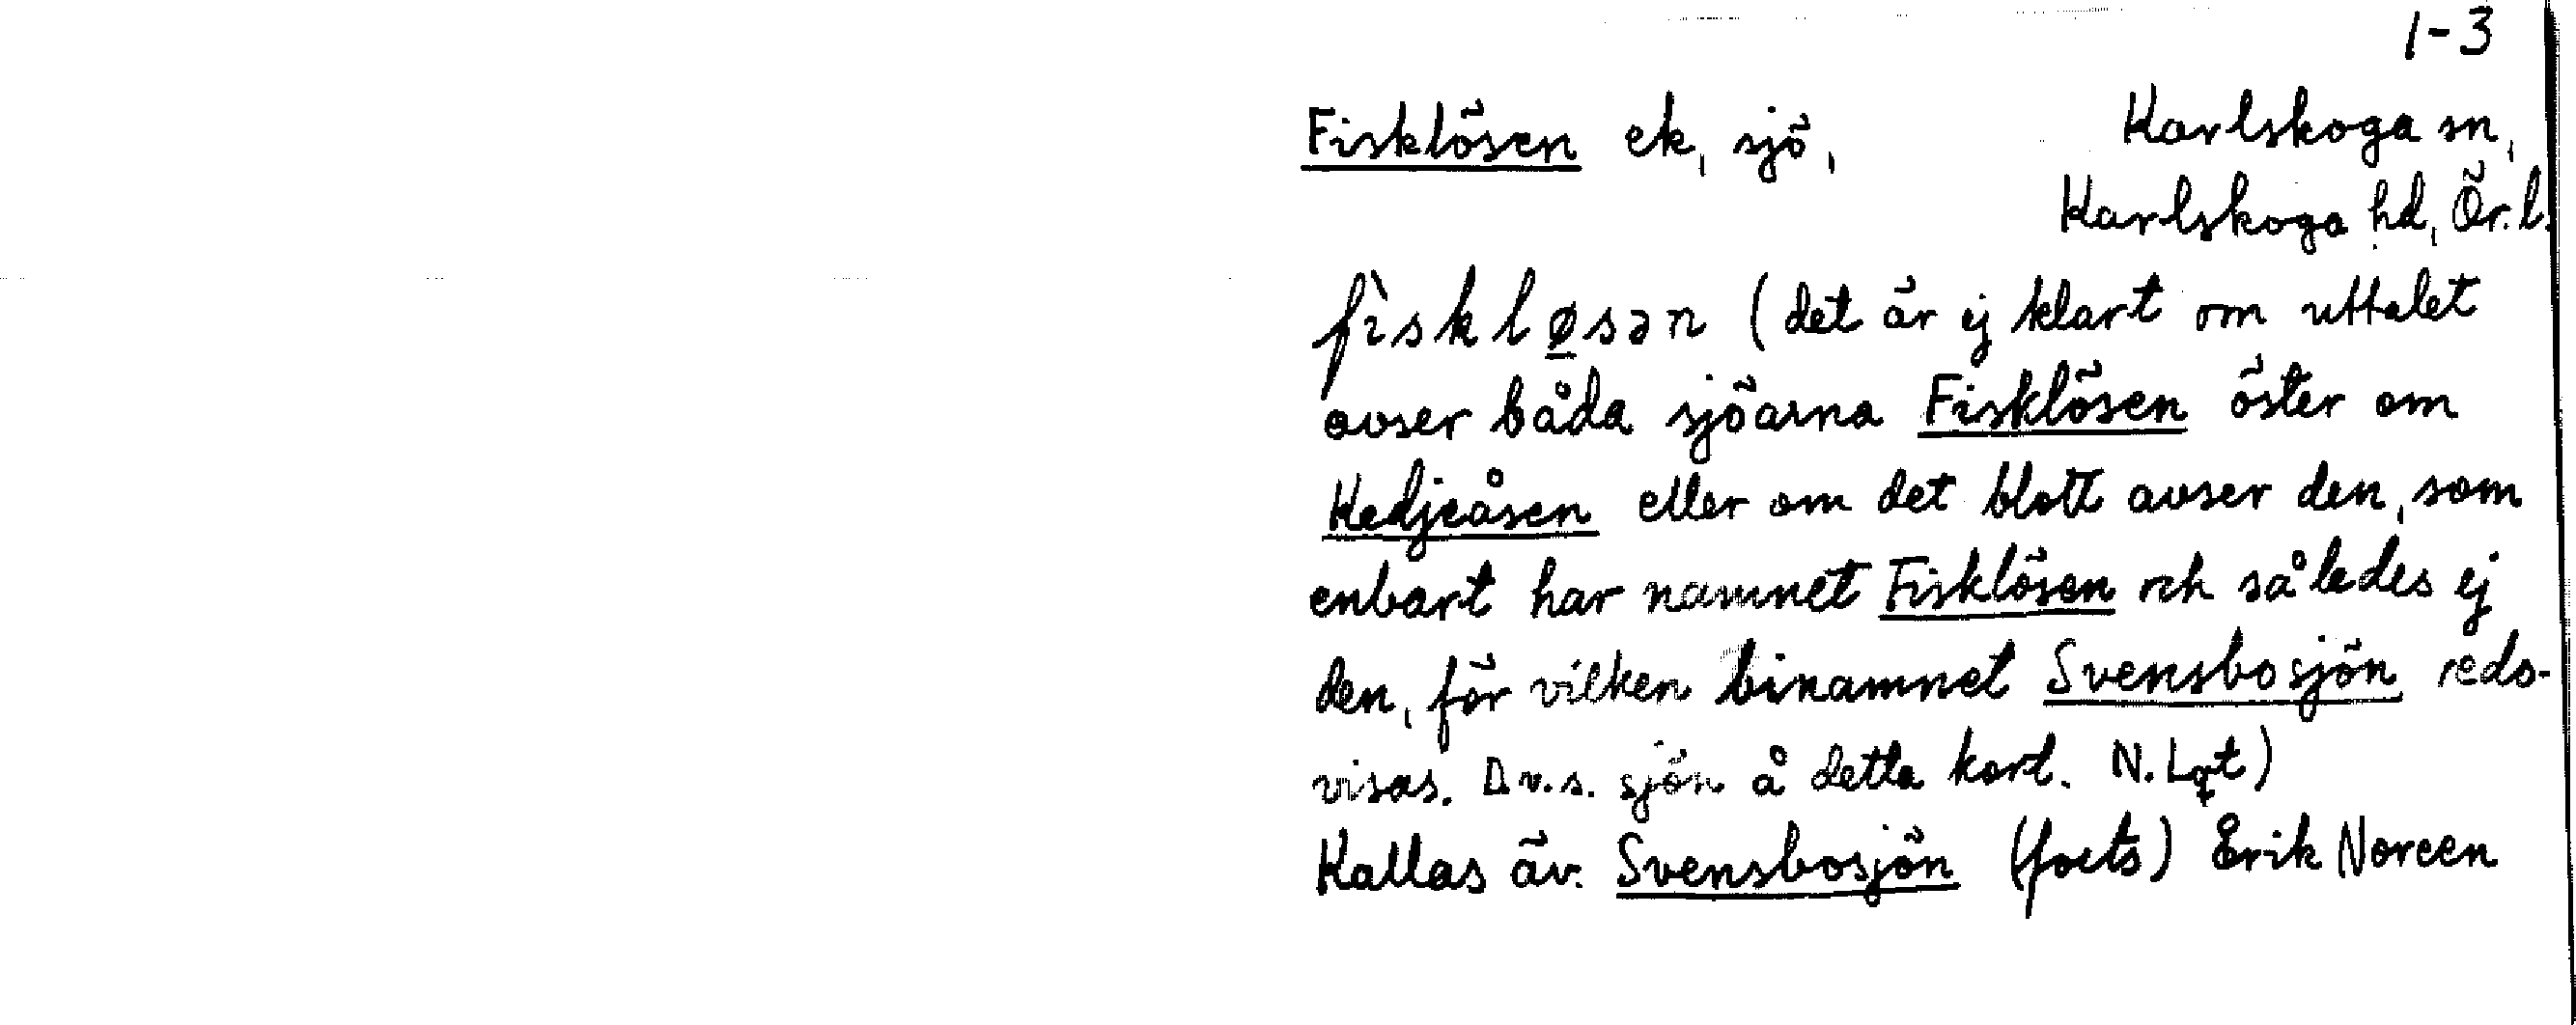 1-3
Fisklösen ek, sjö, Karlskoga sn,
Karlskoga hd, Ör.l.
fìskløsən (det är ej klart om uttalet
avser båda sjöarna Fisklösen öster om
Kedjeåsen eller om det blott avser den, som
enbart har namnet Fisklösen och således ej
den, för vilken binamnet Svensbosjön redo-
visas. D.v.s. sjön å detta kort. N. Lqt)
Kallas äv. Svensbosjön (forts) Erik Noreen